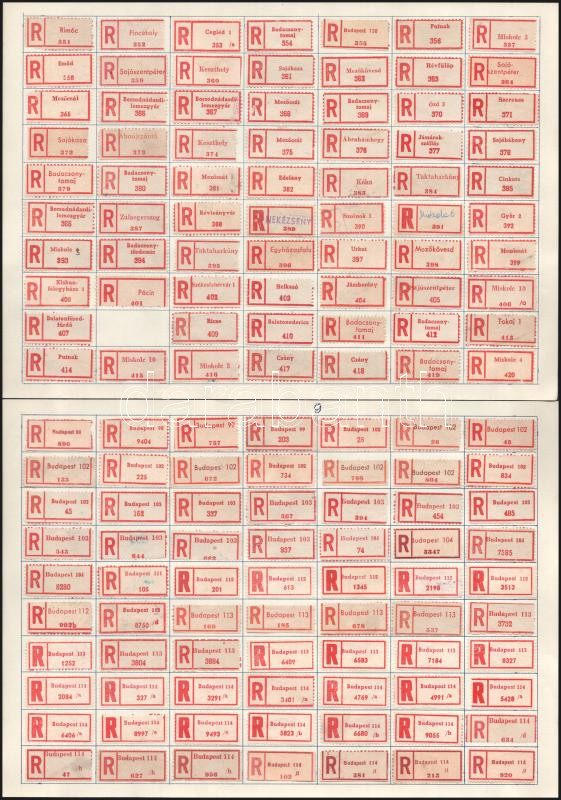 R Rimóc 351
R Fincehely 352
R Cegléd 1 353 /a
R Badacsony-tomaj 354
R Budapest 120 355
R Patnak 356
R Miskolc 2 357
R Emőd 358
R Sajószentpéter 359
R Keszthely 360
R Sajókaza 361
R Mezőkövesd 362
R Révfülöp 363
R Sajó-szentpéter 364
R Mezőcsát 365
R Borsodnádasdi-lemezgyár 366
R Borsodnádasdi-lemezgyár 367
R Mezőcsát 368
R Badacsony-tomaj 369
R Ózd 3 370
R Szerencs 371
R Sajókaza 372
R Abaújszántó 373
R Keszthely 374
R Mezőcsát 375
R Ábrahámhegy 376
R Jánosak-szállás 377
R Sajóbábony 378
R Badacsony-tomaj 379
R Badacsony-tomaj 380
R Mezőcsát 381
R Edelény 382
R Kóka 383
R Taktaharkány 384
R Cinkota 385
R Borsodnádasdi-lemezgyár 386
R Zalaegerszeg 387
R Révleányvár 388
R NEKÉZSENY 389
R Szolnok 1 390
R Miskolc 6 391
R Győr 2 392
R Miskolc 2 393
R Badacsony-tördemic 394
R Taktaharkány 395
R Egyházasfalu 396
R Urhut 397
R Mezőkövesd 398
R Mezőcsát 399
R Kiskun-félegyháza 1 400
R Pácin 401
R Székesfehérvár 1 402
R Helkszó 403
R Jánkerény 404
R Sajószentpéter 405
R Miskolc 10 406 /a
R Balatonfüred-fürdő 407
R Ricse 409
R Balatonederics 410
R Badacsony-tomaj 411
R Badacsony-tomaj 412
R Tokaj 1 413
R Putnok 414
R Miskolc 10 415
R Miskolc 5 416
R Csány 417
R Csány 418
R Badacsony-tomaj 419
R Miskolc 4 420
9
R Budapest 98 890
R Budapest 98 9404
R Budapest 97 757
R Budapest 99 203
R Budapest 102 25
R Budapest 102 26
R Budapest 102 45
R Budapest 102 133
R Budapest 102 225
R Budapest 102 672
R Budapest 102 734
R Budapest 102 798
R Budapest 102 804
R Budapest 102 834
R Budapest 103 45
R Budapest 103 162
R Budapest 103 337
R Budapest 103 367
R Budapest 103 394
R Budapest 103 454
R Budapest 103 485
R Budapest 103 543
R Budapest 103 644
R Budapest 103 662
R Budapest 103 937
R Budapest 104 74
R Budapest 104 3347
R Budapest 104 7385
R Budapest 104 8280
R Budapest 111 105
R Budapest 112 201
R Budapest 112 613
R Budapest 112 1345
R Budapest 112 2198
R Budapest 112 3513
R Budapest 112 992b
R Budapest 113 8750 /d
R Budapest 113 169
R Budapest 113 185
R Budapest 113 678
R Budapest 113 537
R Budapest 113 3732
R Budapest 113 1252
R Budapest 113 3804
R Budapest 113 3884
R Budapest 113 6409
R Budapest 113 6583
R Budapest 113 7184
R Budapest 113 8327
R Budapest 114 2084 /a
R Budapest 114 327 /a
R Budapest 114 3291 /a
R Budapest 114 3401 /a
R Budapest 114 4769 /a
R Budapest 114 4991 /a
R Budapest 114 5428 /a
R Budapest 114 6406 /a
R Budapest 114 8997 /a
R Budapest 114 9493 /a
R Budapest 114 5823 /b
R Budapest 114 6680 /b
R Budapest 114 9055 /b
R Budapest 114 684 /d
R Budapest 114 47 /h
R Budapest 114 627 /h
R Budapest 114 956 /h
R Budapest 114 102 /l
R Budapest 114 281 /l
R Budapest 114 213 /l
R Budapest 114 920 /l
darabanth